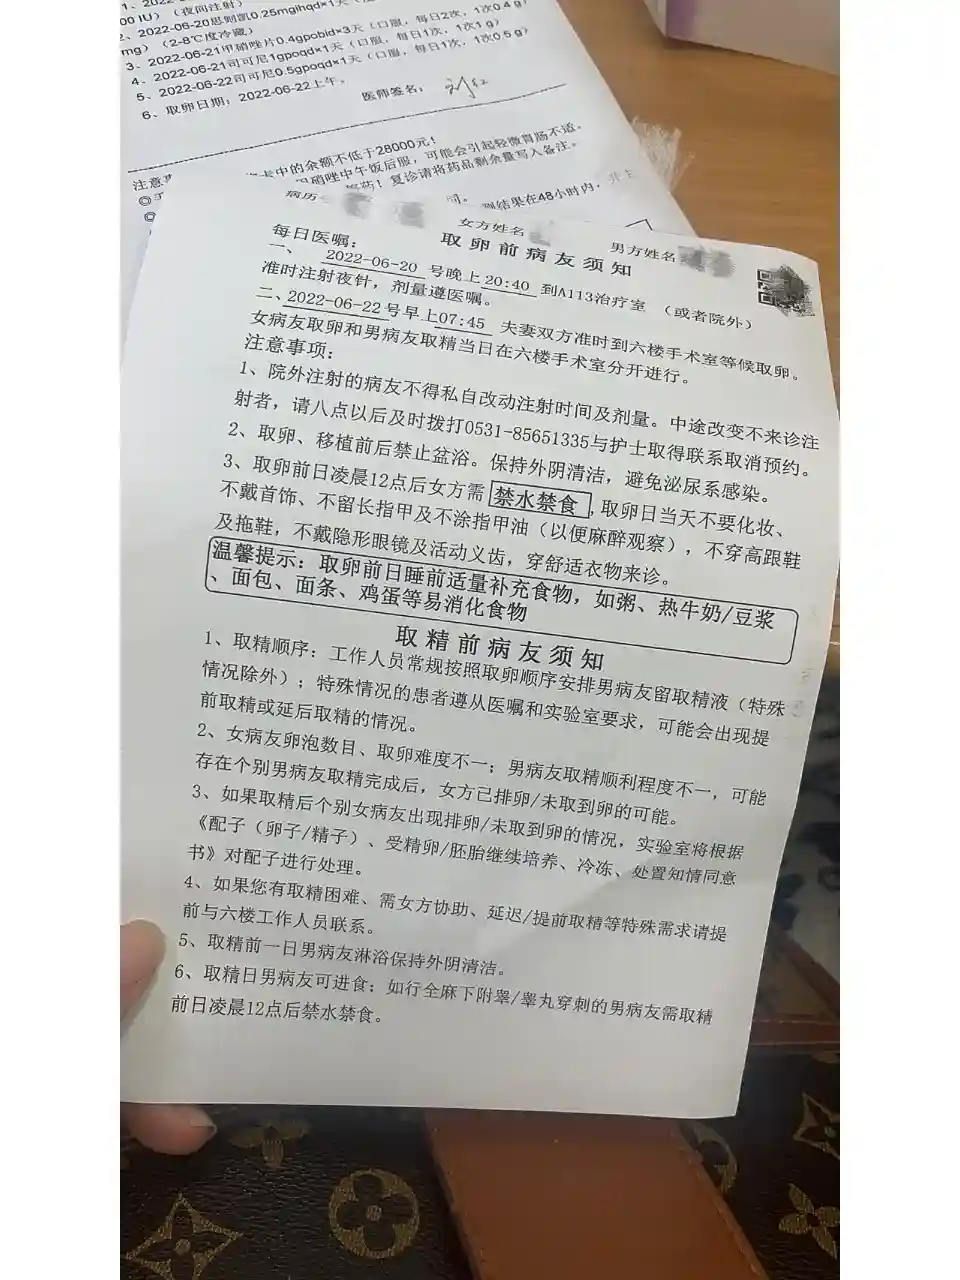 1、2022-06-20
00 IU）（夜间注射）
2、2022-06-20思则凯0.25mgihqd×1天
mg）（2-8℃度冷藏）
3、2022-06-21甲硝唑片0.4gpobid×3天（口服，每日2次，1次0.4 g）
4、2022-06-21司可尼1gpoqd×1天（口服，每日1次，1次1 g）
5、2022-06-22司可尼0.5gpoqd×1天（口服，每日1次，1次0.5 g）
6、取卵日期：2022-06-22上午。
医师签名：
注意
卡中的余额不低于28000元！
硝唑中午饭后服，可能会引起轻微胃肠不适。
药！复诊请将药品剩余量写入备注。
测结果在48小时内，
病历
女方姓名
男方姓名
取卵前病友须知
每日医嘱：
一、 2022-06-20 号晚上20:40 到A113治疗室 （或者院外）
准时注射夜针，剂量遵医嘱。
二、2022-06-22号早上07:45 夫妻双方准时到六楼手术室等候取卵。
女病友取卵和男病友取精当日在六楼手术室分开进行。
注意事项：
1、院外注射的病友不得私自改动注射时间及剂量。中途改变不来诊注
射者，请八点以后及时拨打0531-85651335与护士取得联系取消预约。
2、取卵、移植前后禁止盆浴。保持外阴清洁，避免泌尿系感染。
3、取卵前日凌晨12点后女方需 禁水禁食 ，取卵日当天不要化妆、
不戴首饰、不留长指甲及不涂指甲油（以便麻醉观察），不穿高跟鞋
及拖鞋，不戴隐形眼镜及活动义齿，穿舒适衣物来诊。
温馨提示：取卵前日睡前适量补充食物，如粥、热牛奶/豆浆
、面包、面条、鸡蛋等易消化食物
取精前病友须知
1、取精顺序：工作人员常规按照取卵顺序安排男病友留取精液（特殊
情况除外）；特殊情况的患者遵从医嘱和实验室要求，可能会出现提
前取精或延后取精的情况。
2、女病友卵泡数目、取卵难度不一；男病友取精顺利程度不一，可能
存在个别男病友取精完成后，女方已排卵/未取到卵的可能。
3、如果取精后个别女病友出现排卵/未取到卵的情况，实验室将根据
《配子（卵子/精子）、受精卵/胚胎继续培养、冷冻、处置知情同意
书》对配子进行处理。
4、如果您有取精困难、需女方协助、延迟/提前取精等特殊需求请提
前与六楼工作人员联系。
5、取精前一日男病友淋浴保持外阴清洁。
6、取精日男病友可进食；如行全麻下附睾/睾丸穿刺的男病友需取精
前日凌晨12点后禁水禁食。